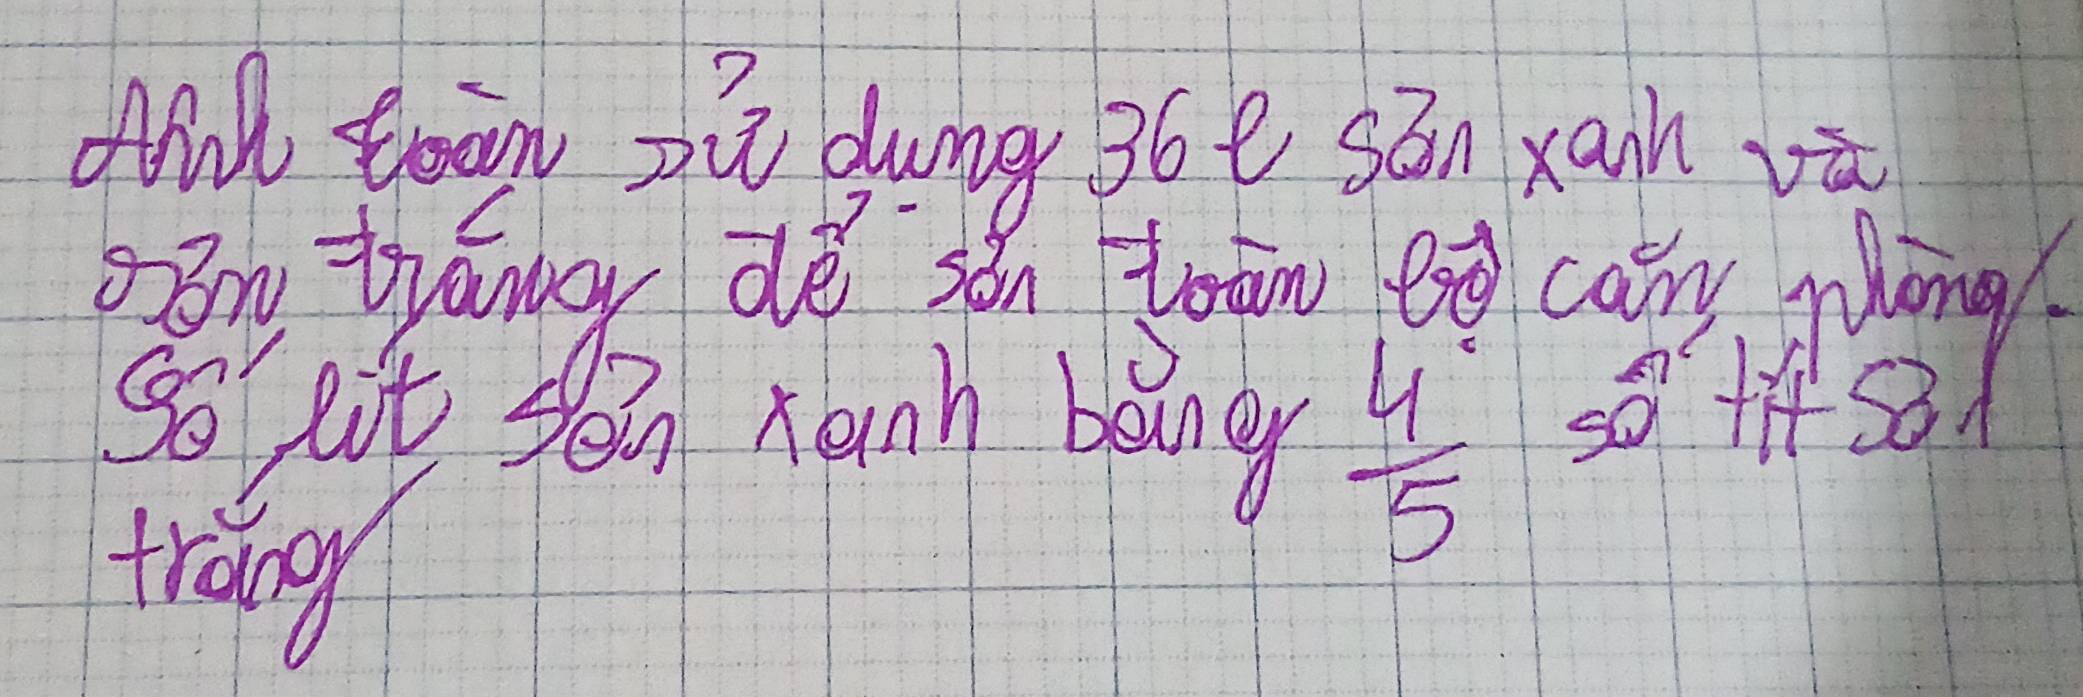 Anh toàn sử dụng 36 l sơn xanh và
sơn trắng để sơn toàn bộ căn phòng.
Số lít sơn xanh bằng 4/5 số lít sơn
trắng